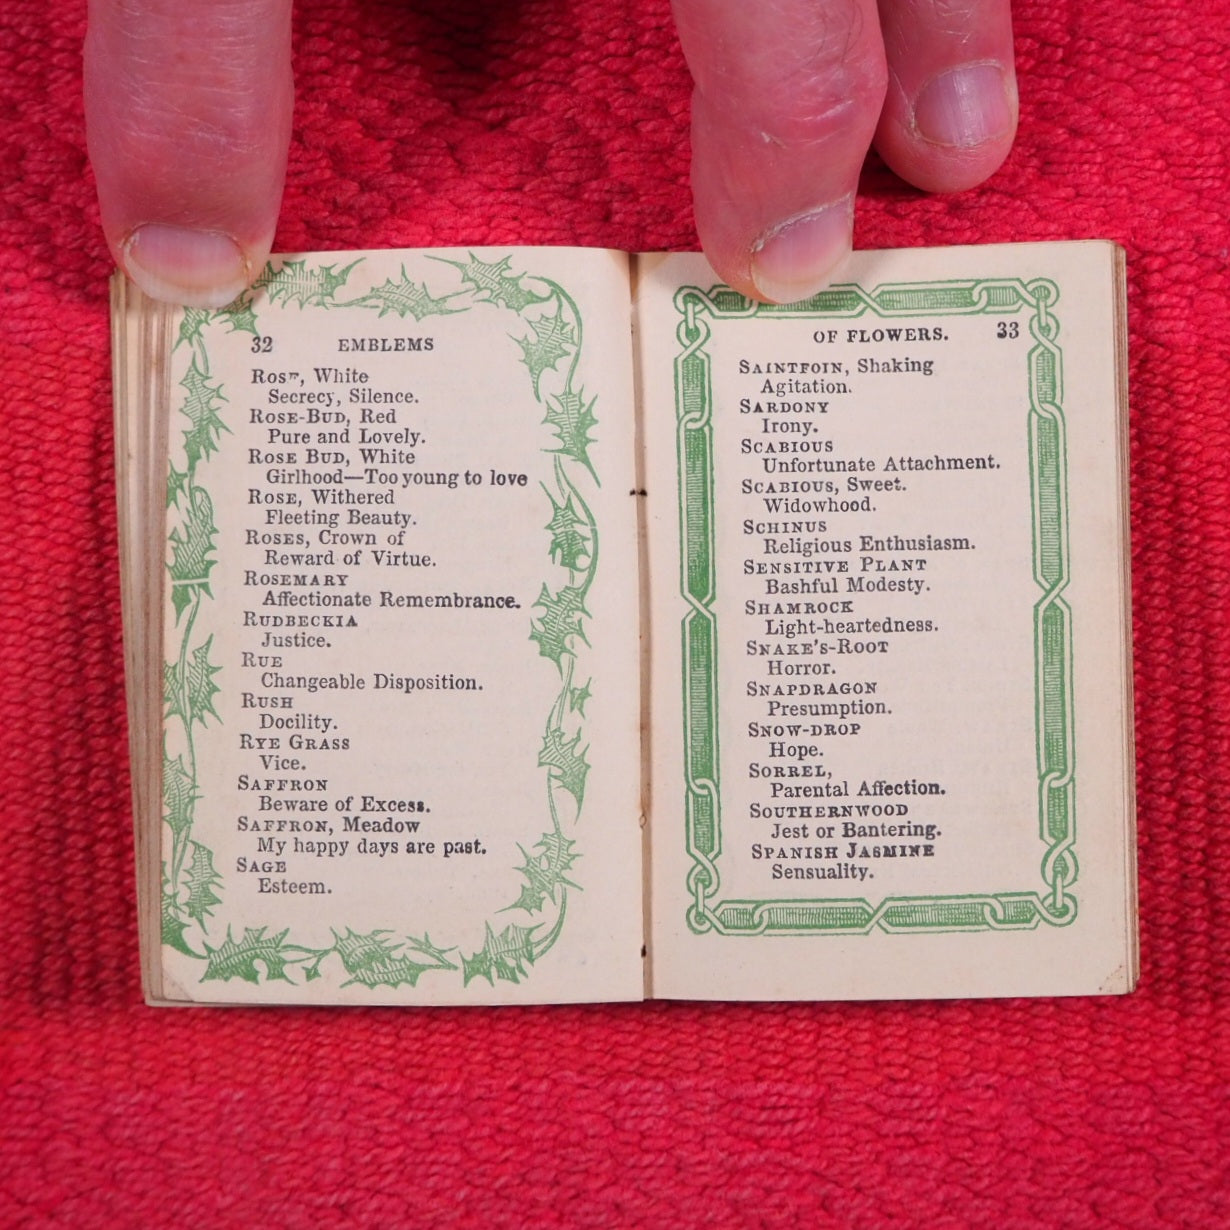 32 EMBLEMS
Rose, White
Secrecy, Silence.
Rose-Bud, Red
Pure and Lovely.
Rose Bud, White
Girlhood—Too young to love
Rose, Withered
Fleeting Beauty.
Roses, Crown of
Reward of Virtue.
Rosemary
Affectionate Remembrance.
Rudbeckia
Justice.
Rue
Changeable Disposition.
Rush
Docility.
Rye Grass
Vice.
Saffron
Beware of Excess.
Saffron, Meadow
My happy days are past.
Sage
Esteem.
OF FLOWERS. 33
Saintfoin, Shaking
Agitation.
Sardony
Irony.
Scabious
Unfortunate Attachment.
Scabious, Sweet.
Widowhood.
Schinus
Religious Enthusiasm.
Sensitive Plant
Bashful Modesty.
Shamrock
Light-heartedness.
Snake's-Root
Horror.
Snapdragon
Presumption.
Snow-drop
Hope.
Sorrel,
Parental Affection.
Southernwood
Jest or Bantering.
Spanish Jasmine
Sensuality.